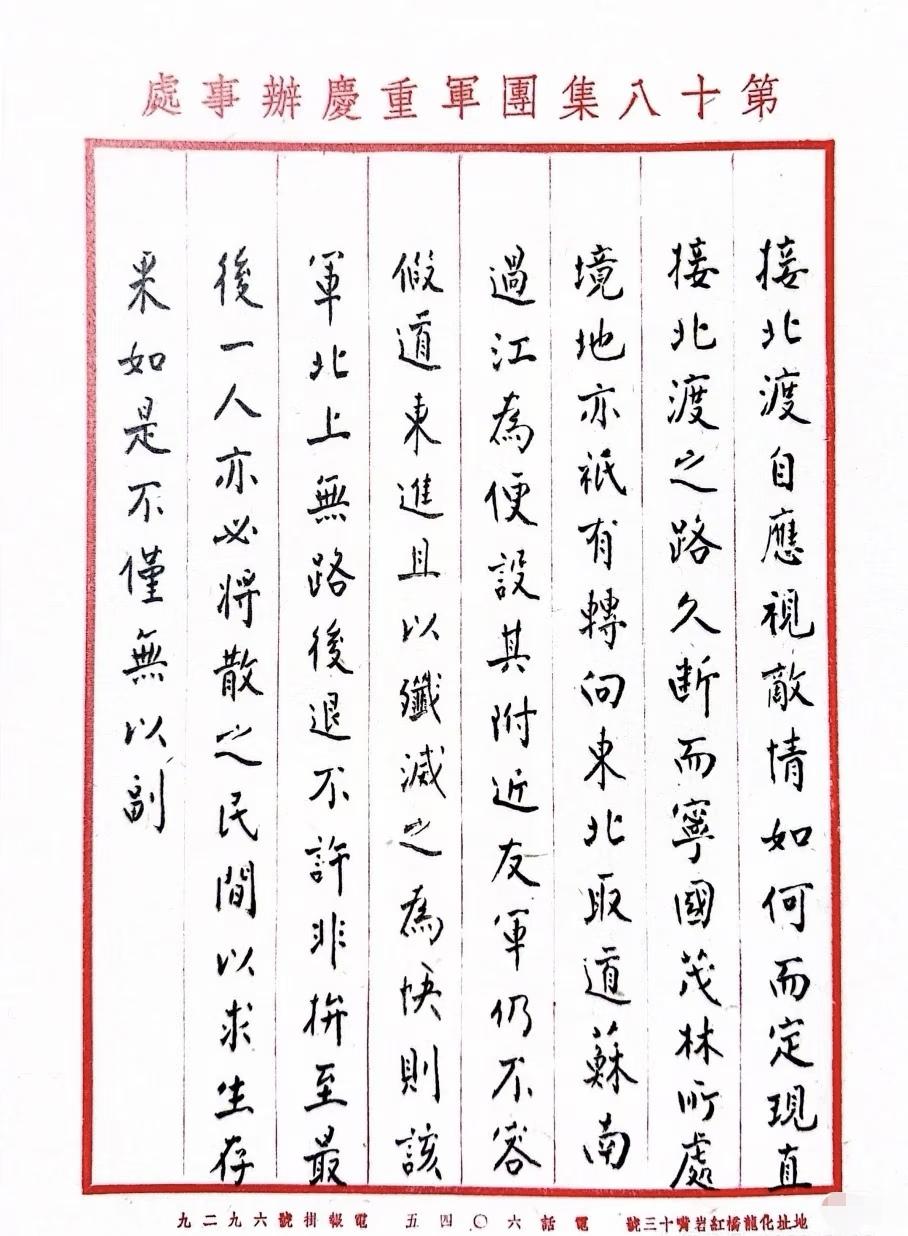 第十八集團軍重慶辦事處
接北渡自應視敵情如何而定現直
接北渡之路久断而寧國茂林所處
境地亦祇有轉向東北取道蘇南
過江為便設其附近友軍仍不容
假道東進且以殲滅之為快則該
軍北上無路後退不許非拚至最
後一人亦必將散之民間以求生存
果如是不僅無以副
地址化龍橋紅岩嘴十三號 電話六〇四五 電報掛號六九二九